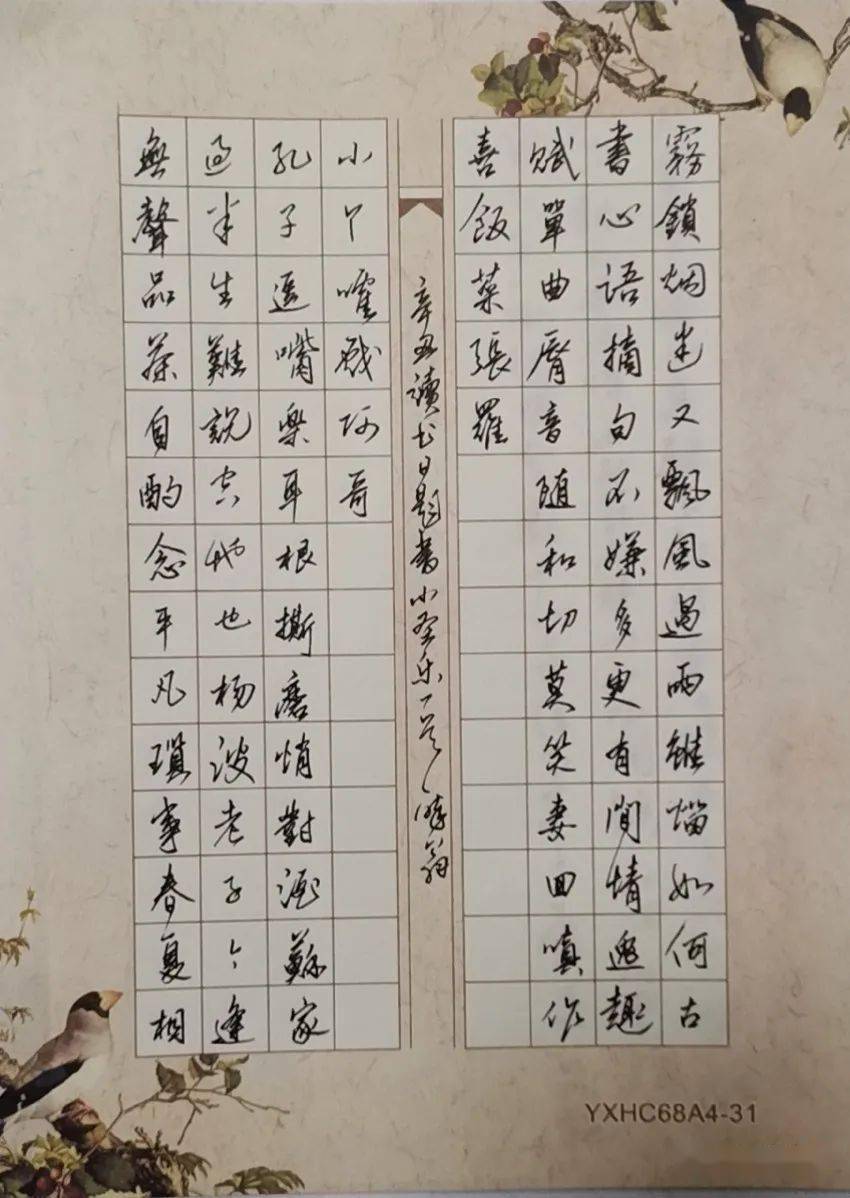 霧鎖烟迷又飄風過雨雖惱如何古
書心語摘句不嫌多更有閒情逸趣
賦單曲唇音随和切莫笑妻回嗔作
喜飯菜張羅
辛丑讀书日題書小圣乐一首
小丫嚯戏阿哥
孔子逗嘴樂耳根撕磨悄對酒蘇家
過半生難說也杨波老子六逢
無聲品茶自酌念平凡瑣事春夏相
YXHC68A4-31